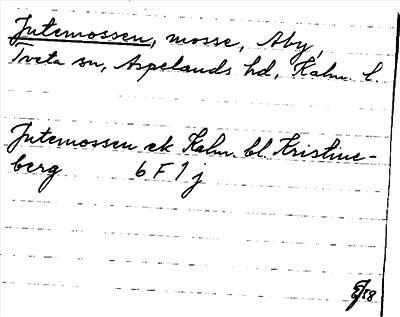 Jutemossen, mosse, Åby,
Tveta sn, Aspelands hd, Kalm. l.
Jutemossen ek Kalm. bl. Kristine-
berg 6 F 1 j